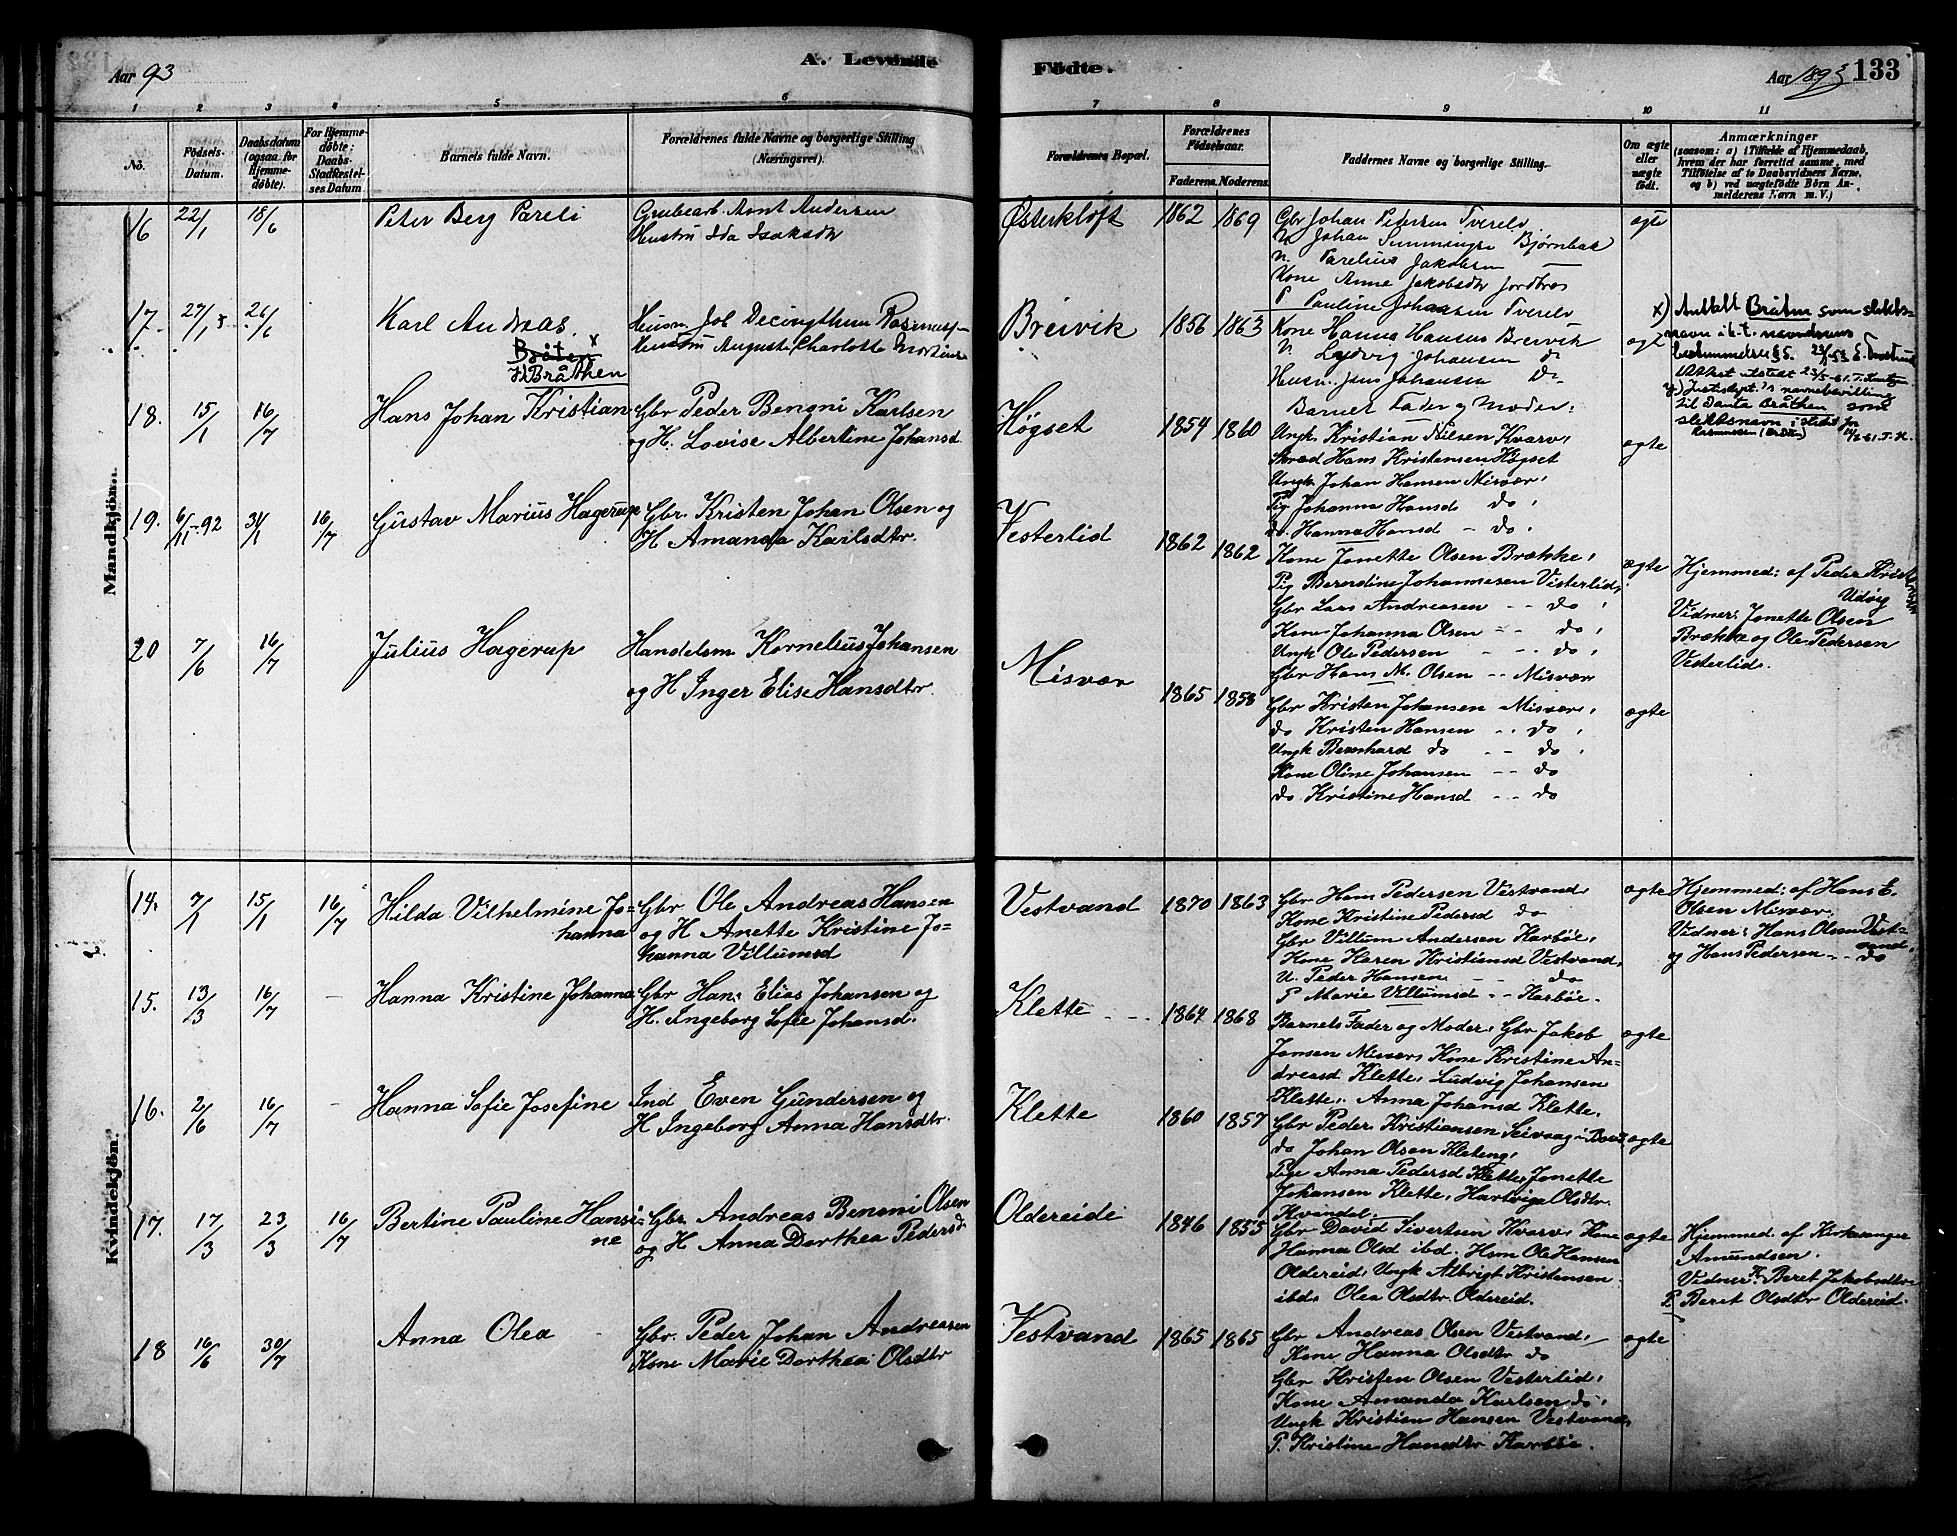 Aar 93
A. Levende
Födte.
Aar 1893
133
1 2 3 4 5 6 7 8 9 10 11
No.
Födsels-Datum.
Daabsdatum (ogsaa for Hjemmedøbte).
For Hjemmedøbte: Daabs-Stadfæstelses Datum
Barnets fulde Navn.
Forældrenes fulde Navne og borgerlige Stilling (Næringsvei).
Forældrenes Bopæl.
Forældrenes Födselsaar.
Faderens. Moderens.
Faddernes Navne og borgerlige Stilling.
Om ægte eller uægte födt.
Anmærkninger
(saasom: a) i Tilfælde af Hjemmedaab,
hvem der har forrettet samme, med
Tilföielse af to Daabsvidners Navne,
og b) ved uægtefödte Börn Anmelderens Navn m.V.)
Mandkjön.
16 22/1 18/6 Peter Berg Pareli
Grubearb. Arnt Andersen
Hustru Ida Isaksdtr
Østerkløft 1862 1869
Gbr Johan Pedersen Tverelv
Bjørnbak
U. Parelius Jakobsen
Kone Anne Jakobsdtr Jordbro
P Pauline Johansen Tverelv
ægte
17. 27/1 26/6 Karl Andreas. x
Bråten
Bråthen
Husm Job Rasmus
Hustru Augusta Charlotte
Breivik 1856 1863
Kone Hanna Hansen Breivik
U. Ludvig Johansen do
Husm. Jens Johansen Do
Barnets Fader og Moder.
ægte
x) Antatt Bråten som slekts-
navn i.h.t. navnelovens
bestemmelser § 5.
navnebevilling
til Bråthen som
slektsnavn i stedet for
Rasmussen (Bråten)
18. 15/1 16/7 Hans Johan Kristian
Gbr Peder Benoni Karlsen
og H. Lovise Albertine Johansd
Høgset 1854 1860
Ungk. Kristian Nilsen Kvarv,
Hans Kristensen Høgset
Ungk Johan Hansen Misvær,
Pig Johanna Hansd do,
do. Hanna Hansd - do.
ægte
19. 6/11-92 31/1 16/7 Gustav Marius Hagerup
Gbr. Kristen Johan Olsen og
H. Amanda Karlsdtr.
Vesterlid 1862 1862
Kone Jonette Olsen Brække,
Pig Berendine Johannesen Vesterlid,
Gbr Lars Andreasen - - do,
Kone Johanna Olsen - - do,
Ungk Ole Pedersen - - do,
Gbr Hans M. Olsen - - Misvær
ægte
Hjemmed: af Peder Kristensen
Udvig
Vidner: Jonette Olsen
Brække og Ole Pedersen
Vesterlid.
20 7/6 16/7 Julius Hagerup
Handelsm Kornelius Johansen
og H Inger Elise Hansdtr.
Misvær 1865 1858
Gbr Kristen Johansen Misvær,
do Kristen Hansen - - do,
Ungk Bernhard do - - do,
Kone Oline Johansen - - do
do. Kristine Hansd - - do
ægte
Kvindekjön.
14. 7/1 15/1 16/7 Hilda Vilhelmine Jo=
hanna
Gbr Ole Andreas Hansen
og H Anette Kristine Jo=
hanna Villumsd
Vestvand 1870 1863
Gbr Hans Pedersen Vestvand,
Kone Kristine Pedersd do
Gbr Villum Andersen Karbøe,
Kone Karen Kristiansd Vestvand,
U. Peder Hansen - do
P Marie Villumsd - - Karbøe.
ægte
Hjemmed: af Hans E.
Olsen Misvær.
Vidner: Hans Olsen Vest=
vand,
og Hans Pedersen - - do
15. 13/3 16/7 - Hanna Kristine Johanna
Gbr Hans Elias Johansen og
H. Ingeborg Sofie Johansd.
Klette - - 1864 1868
Barnets Fader og Moder, Gbr Jakob
Jonsen Misvær, Kone Kristine An=
dreasd Klette, Ludvig Johansen
Klette, Anna Johansd Klette.
ægte
16. 2/6 16/7 - Hanna Sofie Josefine
Ind Even Gundersen og
H Ingeborg Anna Hansdtr.
Klette 1860 1857
Gbr Peder Kristiansen Seivaag i Bodø
do Johan Olsen Kleteng,
Pige Anna Pedersd Klette, Jonette
Johansen Klette, Hartvige Olsdtr.
Kvandal.
ægte
17. 17/3 23/3 16/7 Bertine Pauline Hansi=
ne
Gbr. Andreas Benoni Olsen
og H Anna Dorthea Pedersd
Oldereide 1846 1855
Gbr David Sivertsen Kvarv, Kone
Hanna Olsd ibd. Husm Ole Hansen
Oldereid, Ungk Albrigt Kristensen
ibd, Olea Olsdtr. Oldereid.
ægte
Hjemmed. af Kirkesanger
Amundsen.
Vidner: K Beret Jakobsdtr
P Beret Olsdtr Oldereid.
18 16/6 30/7 Anna Olea
Gbr. Peder Johan Andreasen
Kone Marie Dorthea Olsdtr
Vestvand 1865 1865
Gbr Andreas Olsen Vestvand,
Kone Hanna Olsdtr do
Gbr Kristen Olsen Vesterlid,
Kone Amanda Karlsen do,
Ungk Kristian Hansen Vestvand,
P. Kristine Hansdtr Karbøe.
ægte